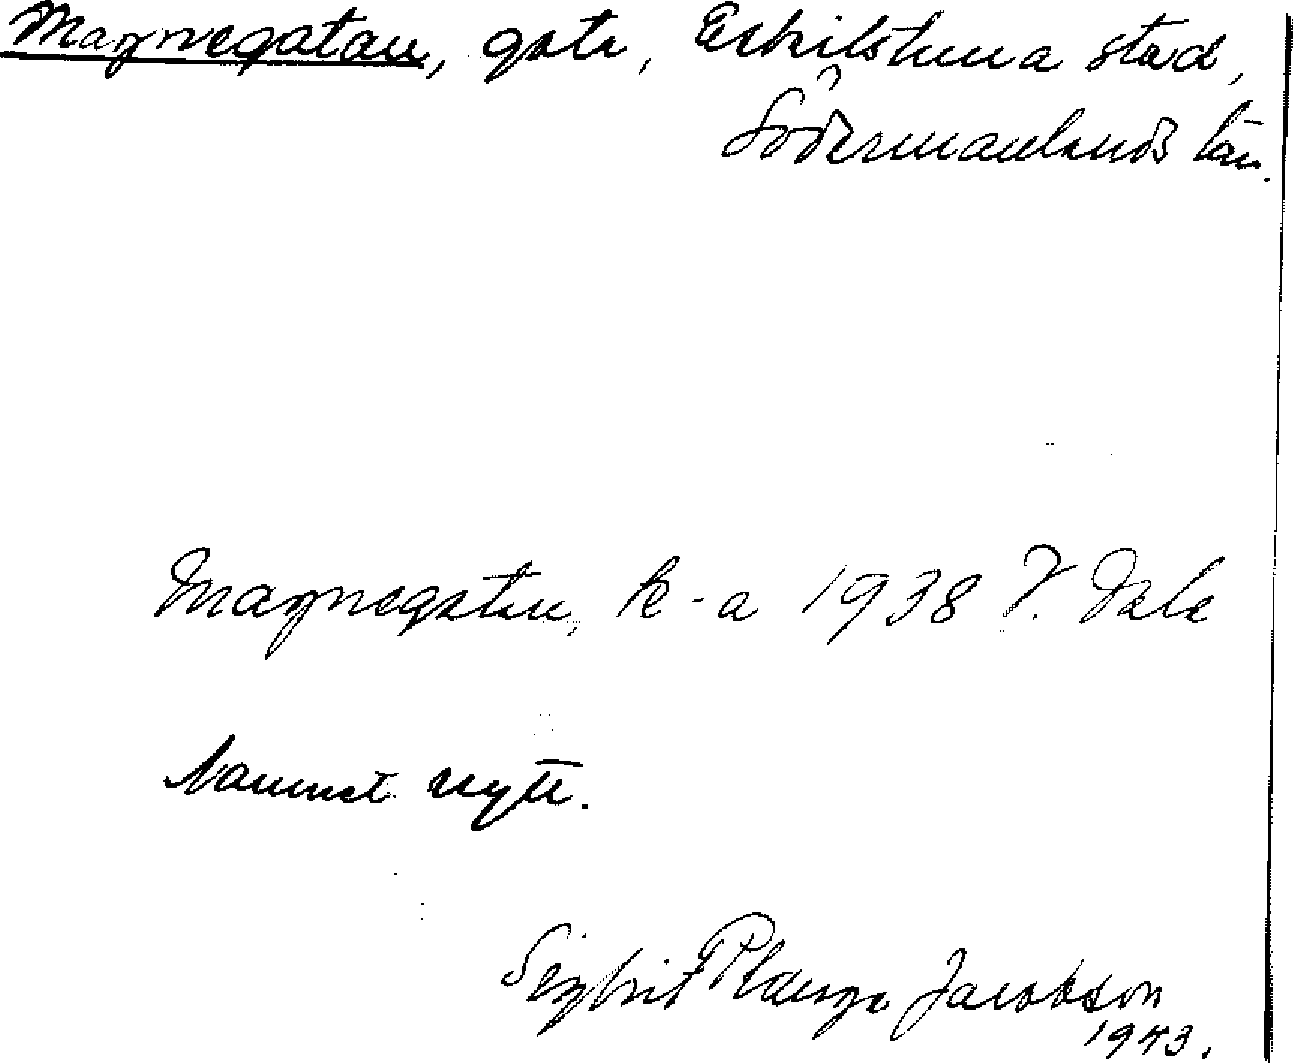 Magnegatan, gata, Eskilstuna stad,
Södermanlands län.
Magnegatan, k-a 1938 V. Dale
Namnet nytt.
Sigbrit Plænge Jacobson
1943.